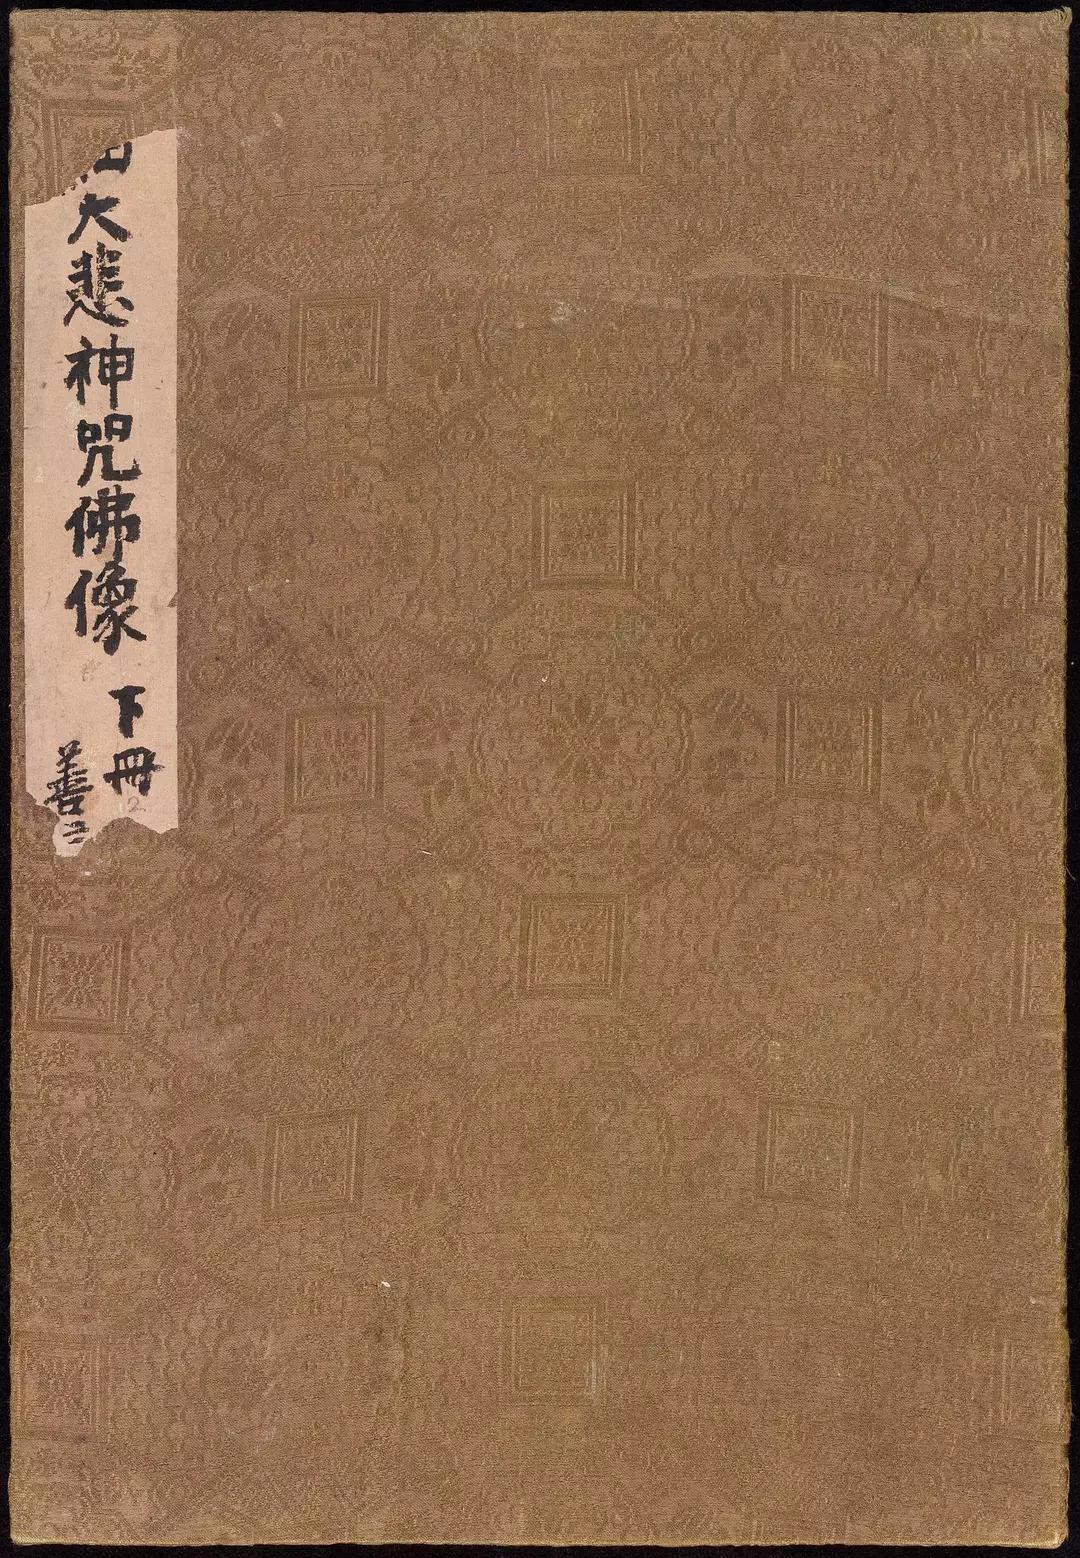 大悲神咒佛像
下冊
善二
2